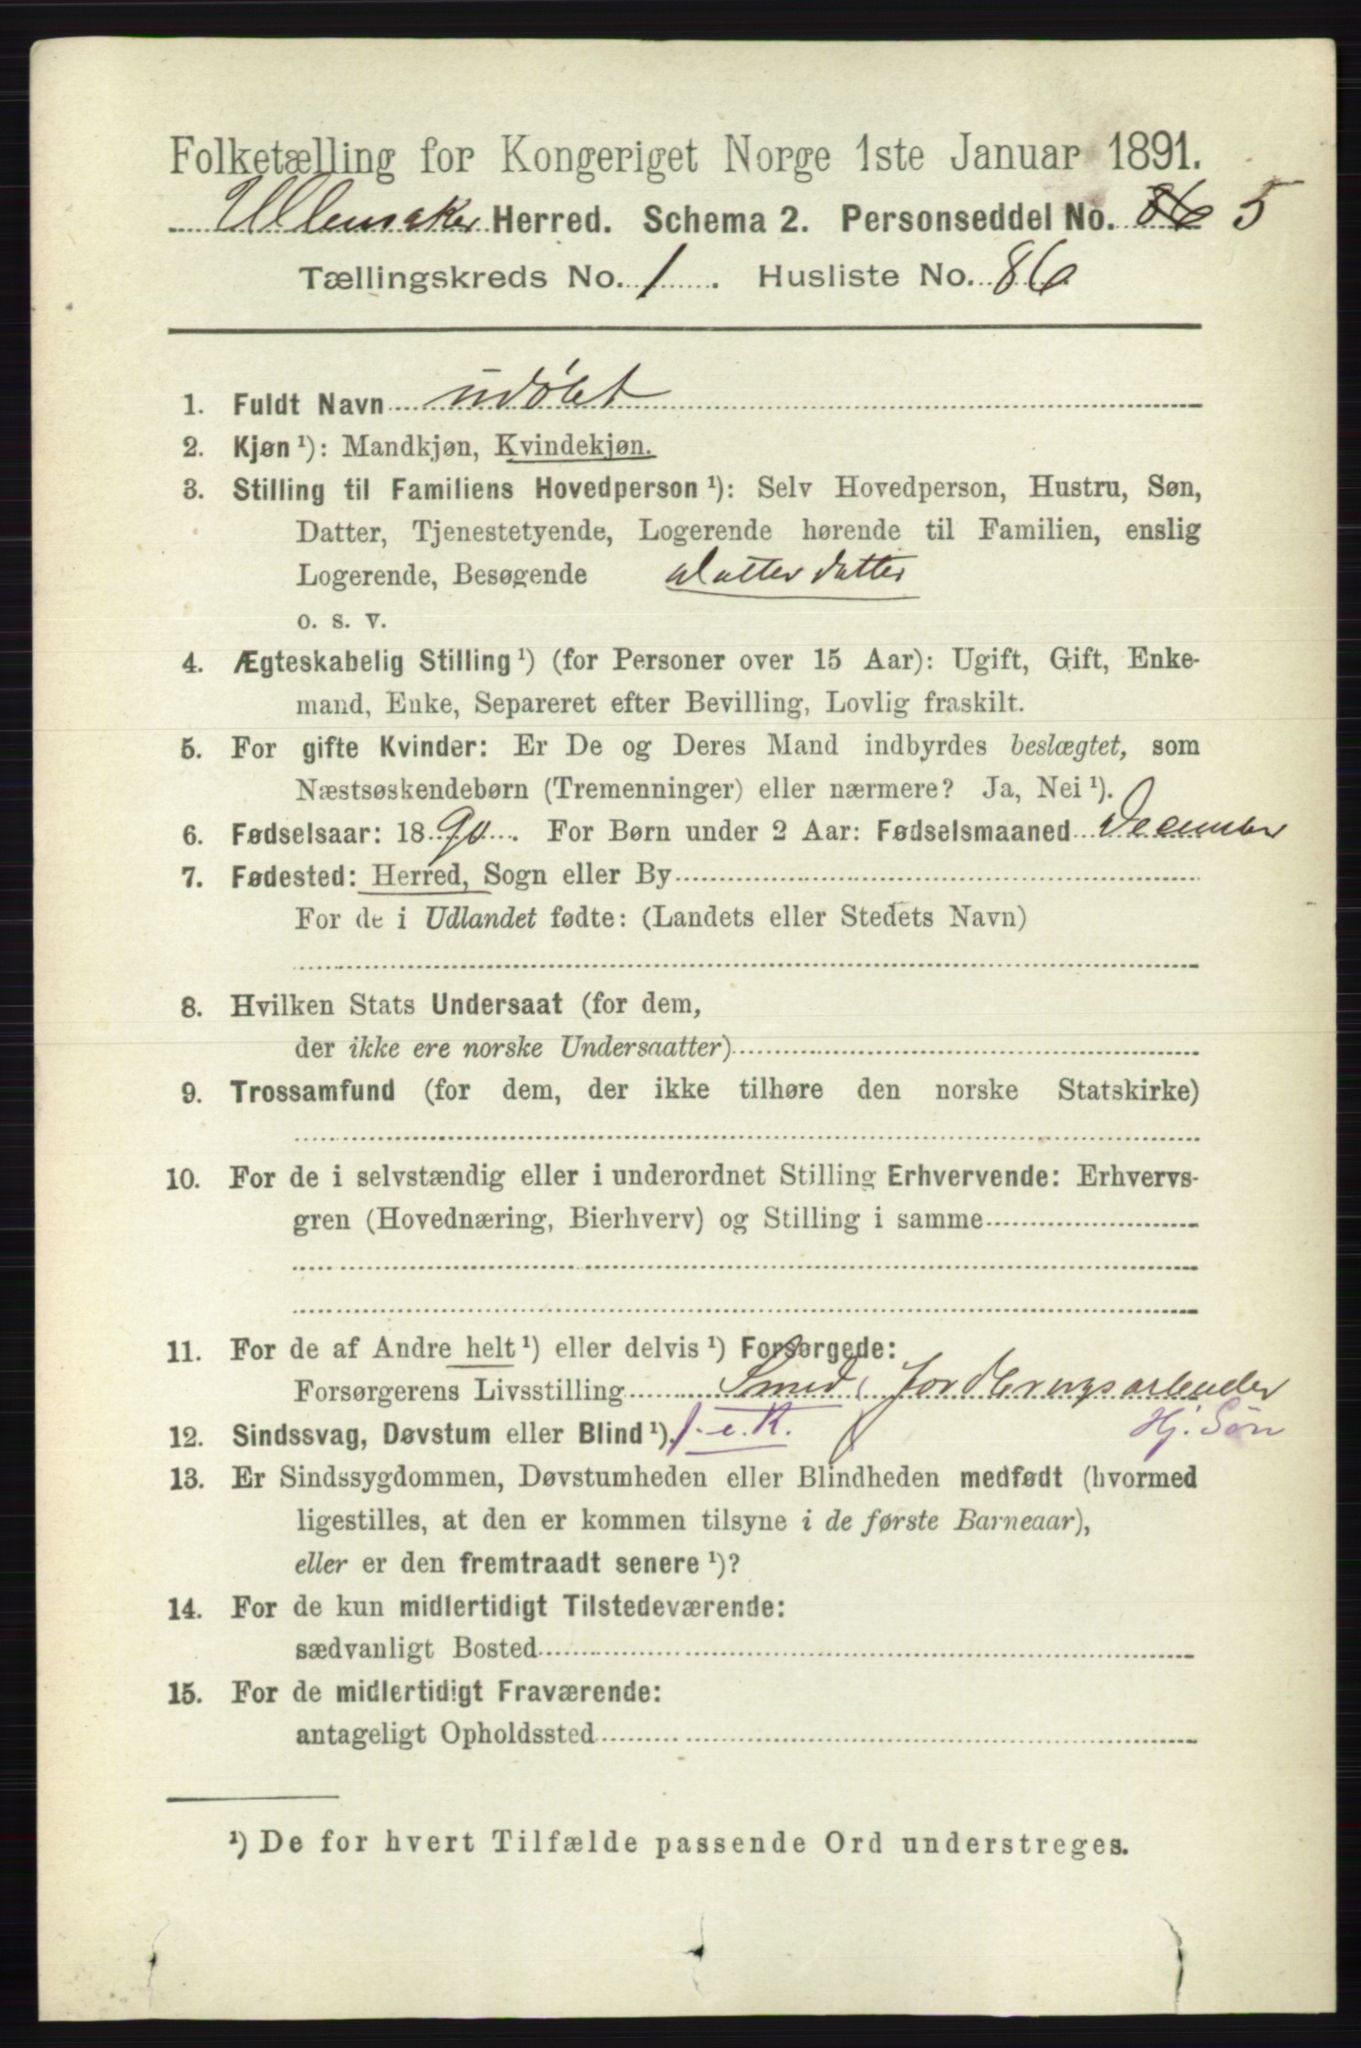 Folketælling for Kongeriget Norge 1ste Januar 1891.
Ullensaker Herred. Schema 2. Personseddel No. 86 5
Tællingskreds No. 1. Husliste No. 86
1. Fuldt Navn udøbt
2. Kjøn ¹): Mandkjøn, Kvindekjøn.
3. Stilling til Familiens Hovedperson ¹): Selv Hovedperson, Hustru, Søn,
Datter, Tjenestetyende, Logerende hørende til Familien, enslig
Logerende, Besøgende datter datter
o. s. v.
4. Ægteskabelig Stilling ¹) (for Personer over 15 Aar): Ugift, Gift, Enke-
mand, Enke, Separeret efter Bevilling, Lovlig fraskilt.
5. For gifte Kvinder: Er De og Deres Mand indbyrdes beslægtet, som
Næstsøskendebørn (Tremenninger) eller nærmere? Ja, Nei ¹).
6. Fødselsaar: 1890. For Børn under 2 Aar: Fødselsmaaned December
7. Fødested: Herred, Sogn eller By
For de i Udlandet fødte: (Landets eller Stedets Navn)
8. Hvilken Stats Undersaat (for dem,
der ikke ere norske Undersaatter)
9. Trossamfund (for dem, der ikke tilhøre den norske Statskirke)
10. For de i selvstændig eller i underordnet Stilling Erhvervende: Erhvervs-
gren (Hovednæring, Bierhverv) og Stilling i samme
11. For de af Andre helt ¹) eller delvis ¹) Forsørgede:
Forsørgerens Livsstilling Smed, Jordbrugsarbeider
12. Sindssvag, Døvstum eller Blind ¹). f. e. K. Hj. Søn
13. Er Sindssygdommen, Døvstumheden eller Blindheden medfødt (hvormed
ligestilles, at den er kommen tilsyne i de første Barneaar),
eller er den fremtraadt senere ¹)?
14. For de kun midlertidigt Tilstedeværende:
sædvanligt Bosted
15. For de midlertidigt Fraværende:
antageligt Opholdssted
¹) De for hvert Tilfælde passende Ord understreges.